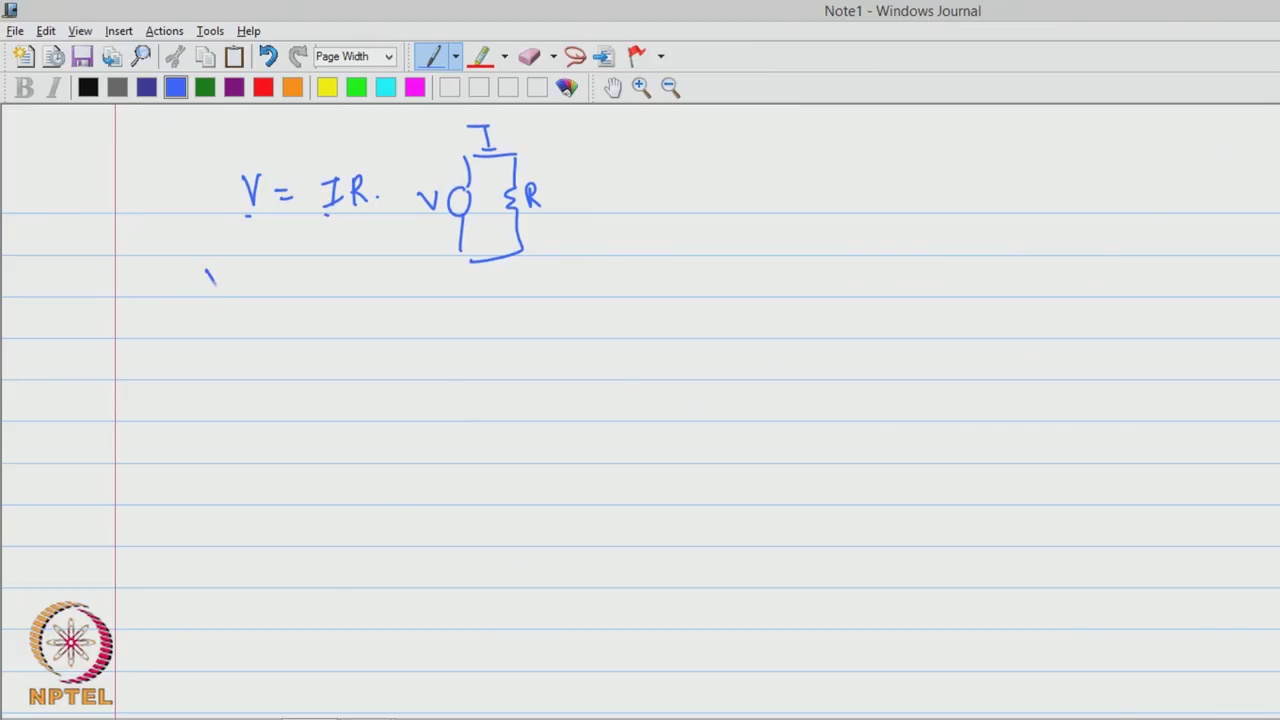 Note1 - Windows Journal
File Edit View Insert Actions Tools Help
Page Width
B I
I
V = IR. V R
NPTEL